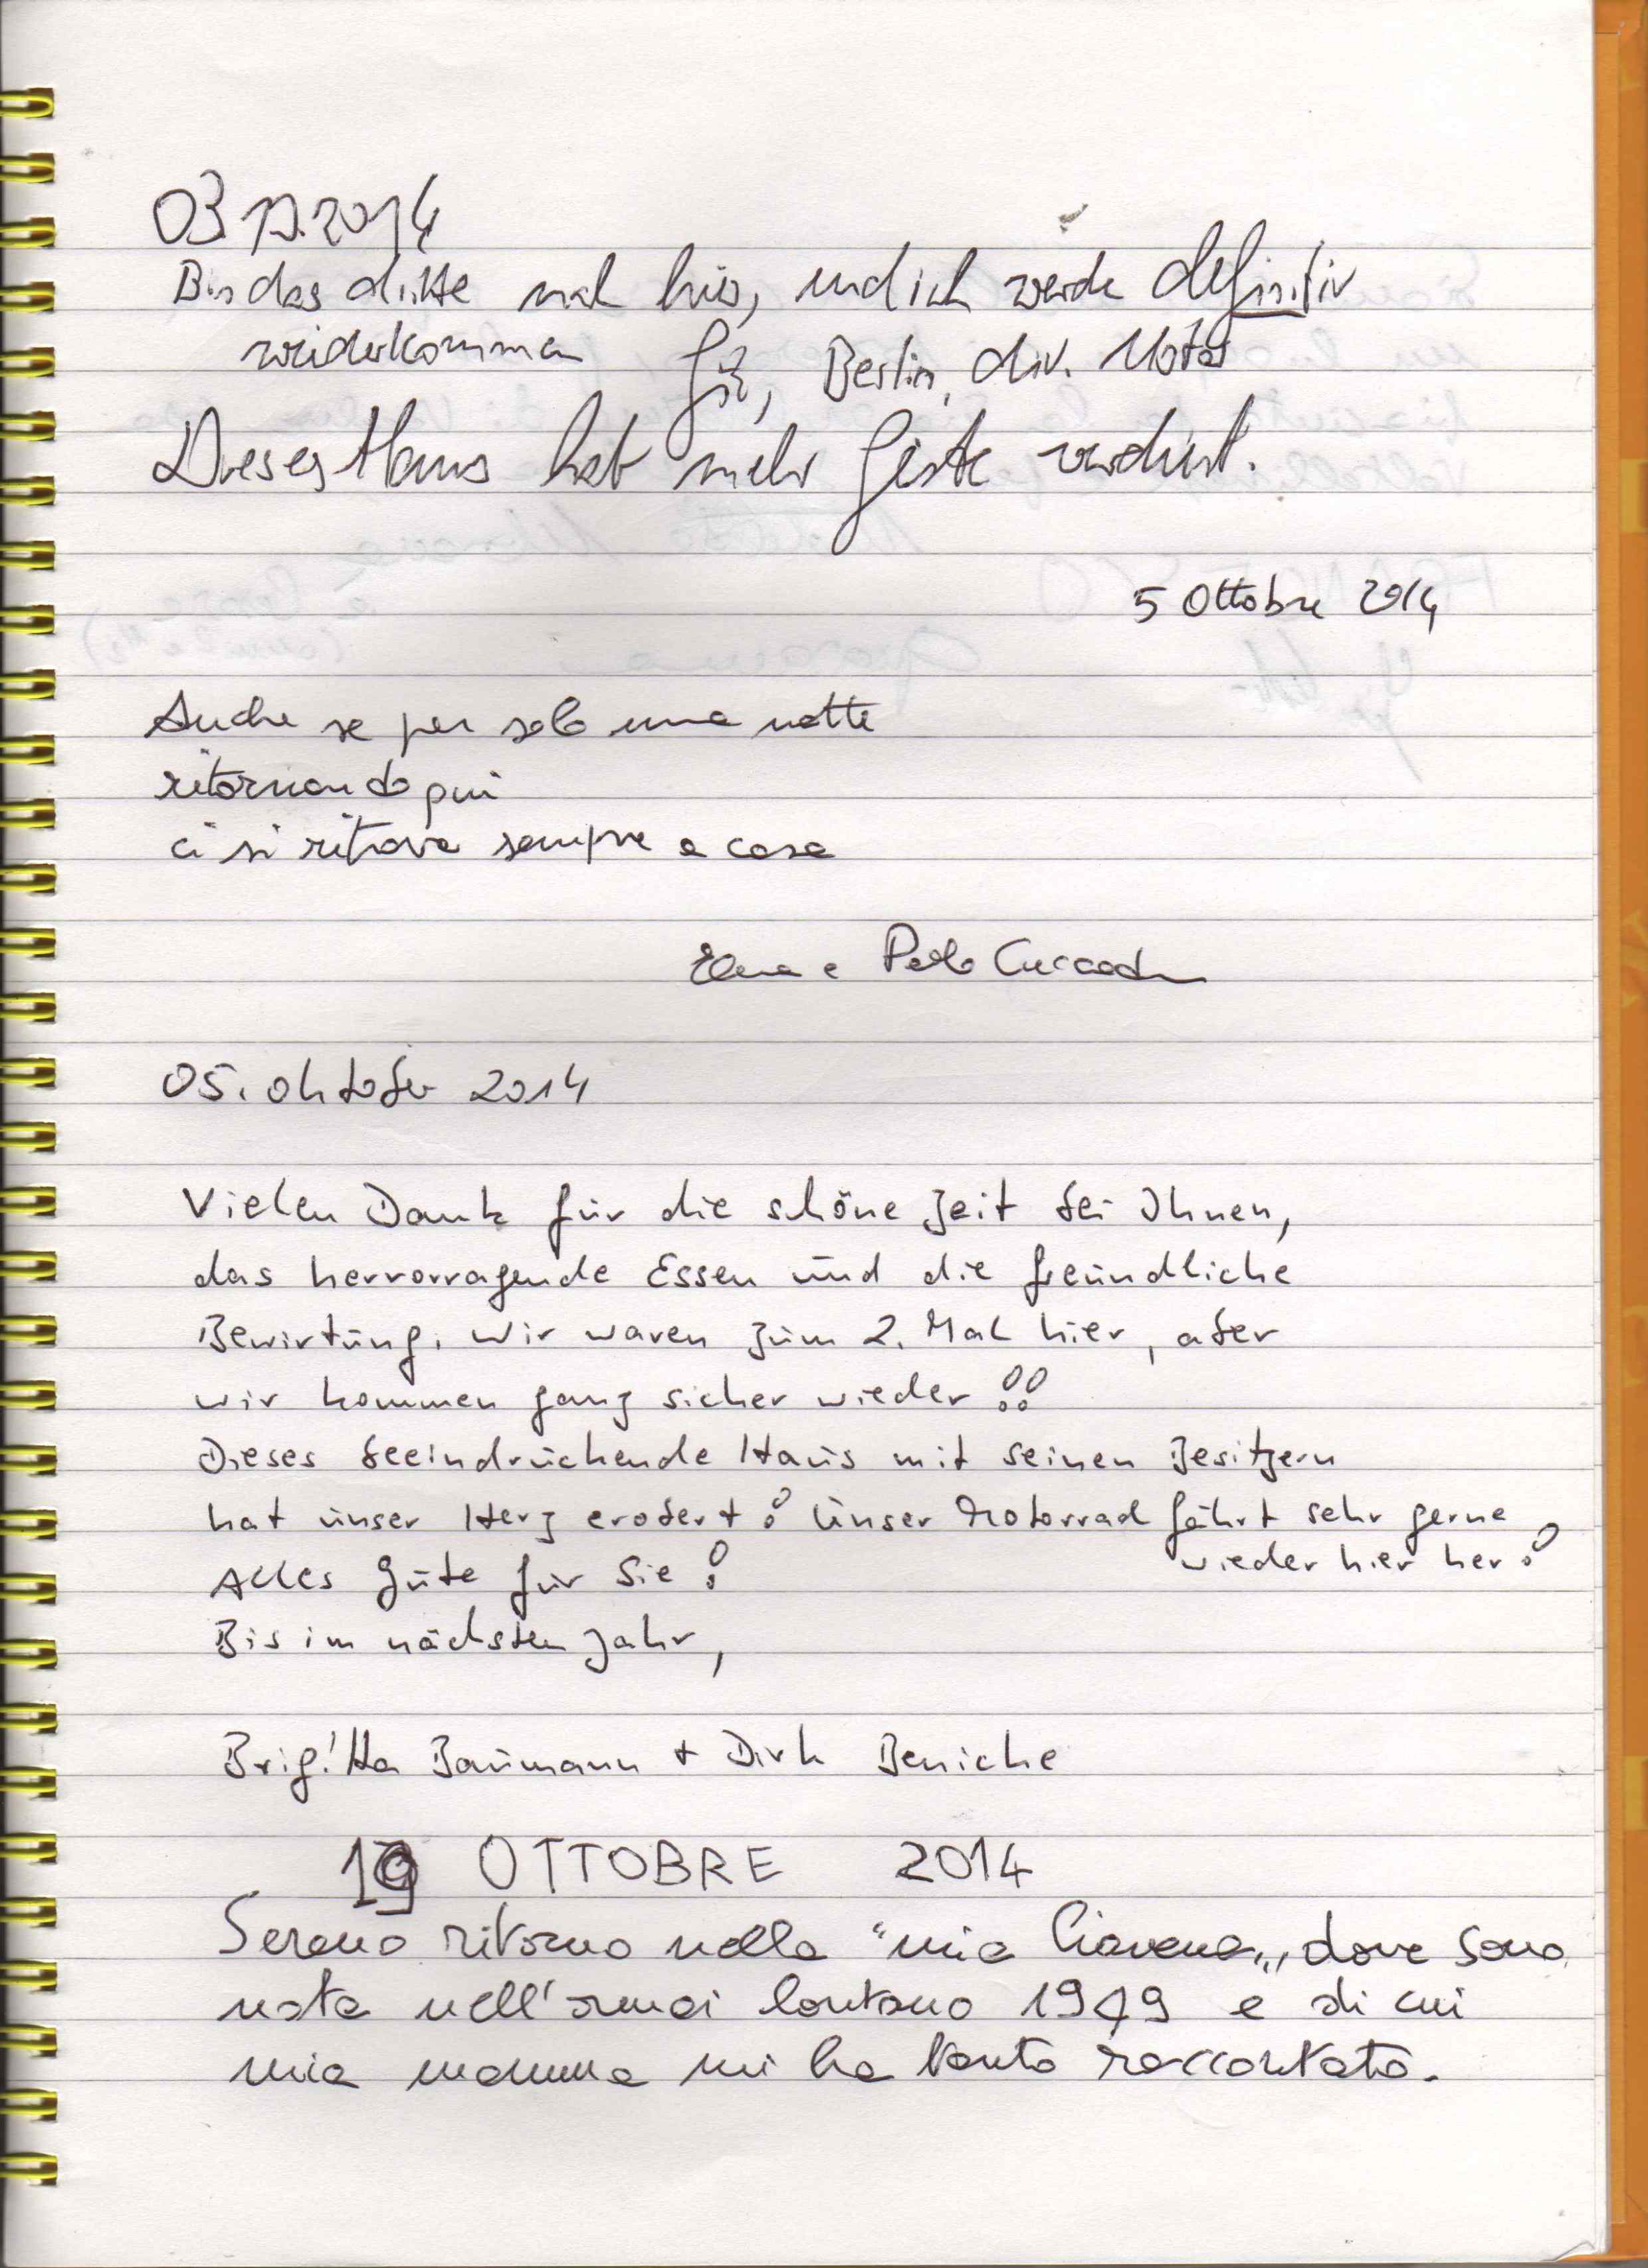 03.10.2014
Bin das dritte mal hier, und ich werde definitiv
wiederkommen Berlin, div. Motor
Dieses Haus hat mehr Gäste verdient.
5 Ottobre 2014
Anche se per solo una notte
ritornando qui
ci si ritrova sempre a casa
Elena e Paolo
05. Oktober 2014
Vielen Dank für die schöne Zeit bei Ihnen,
das hervorragende Essen und die freundliche
Bewirtung. Wir waren zum 2. Mal hier, aber
wir kommen ganz sicher wieder!!
Dieses beeindruckende Haus mit seinen Besitzern
hat unser Herz erobert! Unser Motorrad fährt sehr gerne
wieder hier her!
Alles Gute für Sie!
Bis im nächsten Jahr,
Brigitta Baumann + Dirk Beniche
19 OTTOBRE 2014
Sereno ritorno nella "mia Ciavena", dove sono
nata nell'ormai lontano 1949 e di cui
mia mamma mi ha tanto raccontato.